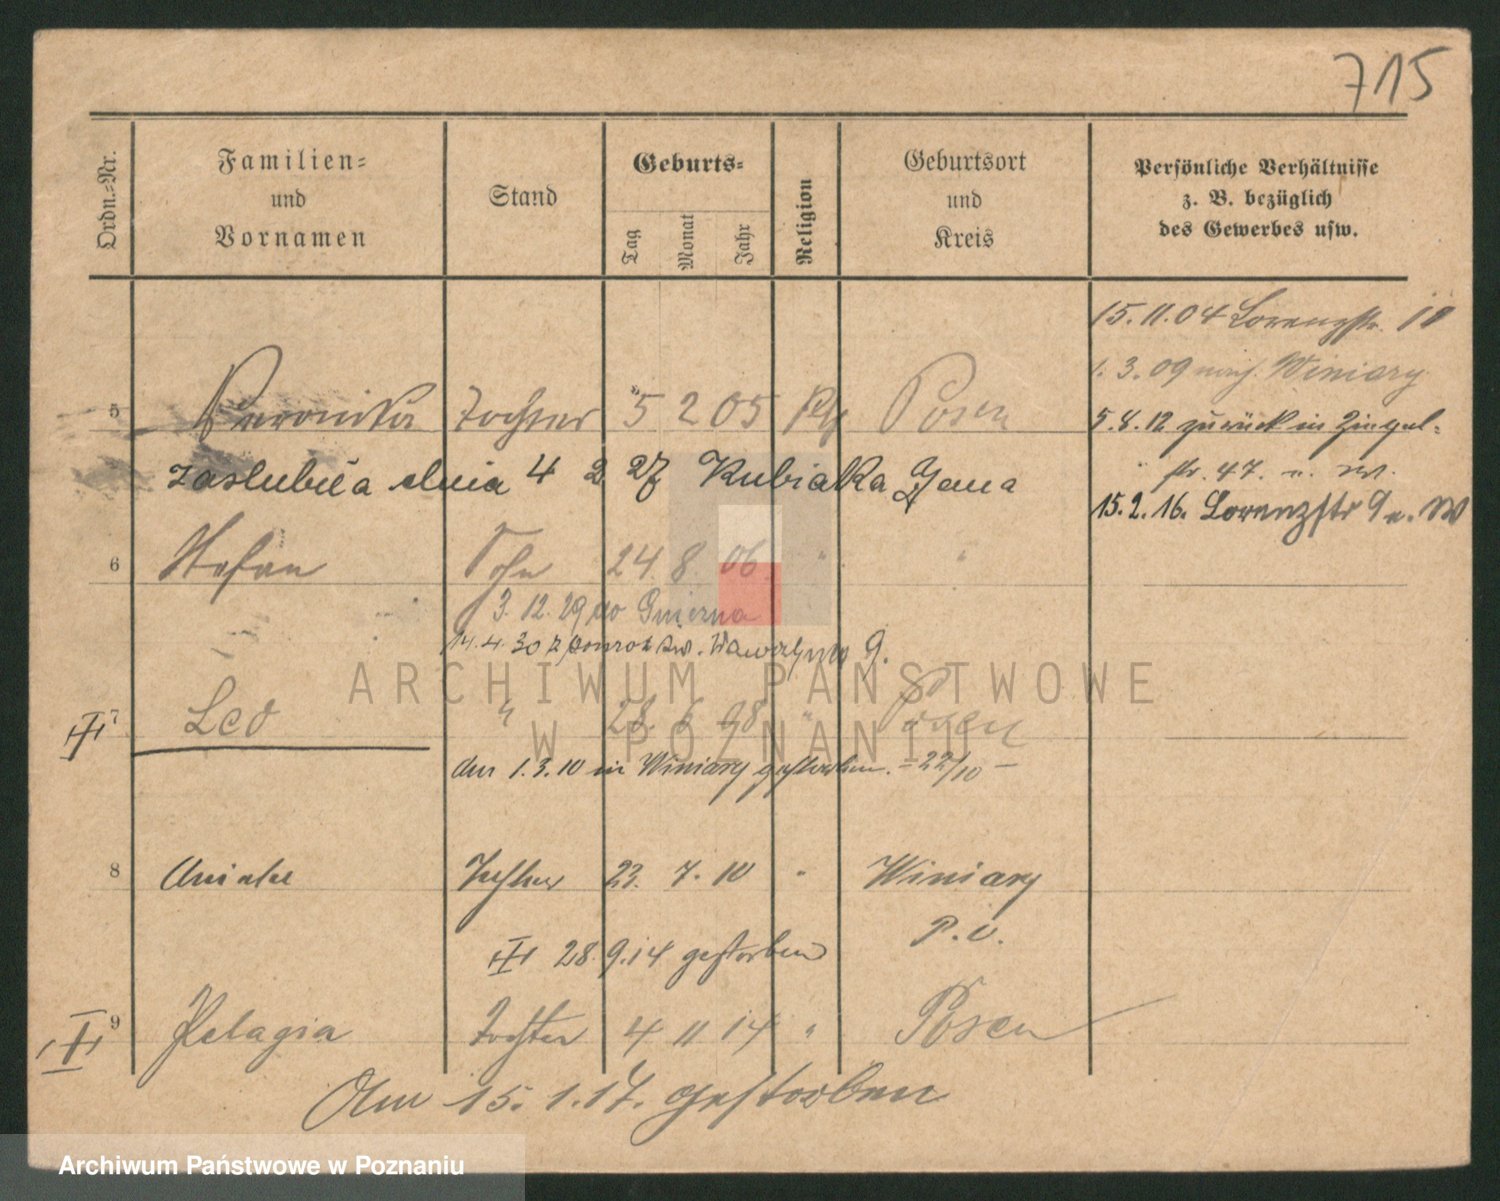 715
Ordn.-Nr.
Familien-
und
Vornamen
Stand
Geburts-
Tag
Monat
Jahr
Religion
Geburtsort
und
Kreis
Persönliche Verhältnisse
z. B. bezüglich
des Gewerbes usw.
15.11.04 Lorenzstr.
1.3.09 nach Winiary
5 Veronika Tochter 5 2 05 Posen
5.8.12 zurück in
str. 47.
zaslubiła dnia 4 2 27 Kubiaka Jana
15.2.16. Lorenzstr 9
6 Stefan Sohn 24. 8 06. " "
3.12.29 do Gniezna
14.4.30 z powrot św. Wawrzyńca 9.
7 Leo " 28. 6 98 " Posen
den 1.3.10 in Winiary gestorben. - 22/10 -
8 Tochter 23. 7. 10 " Winiary
P. O.
28.9.14 gestorben
9 Pelagia Tochter 4 11 14 " Posen
Am 15.1.17. gestorben
ARCHIWUM PAŃSTWOWE
W POZNANIU
Archiwum Państwowe w Poznaniu